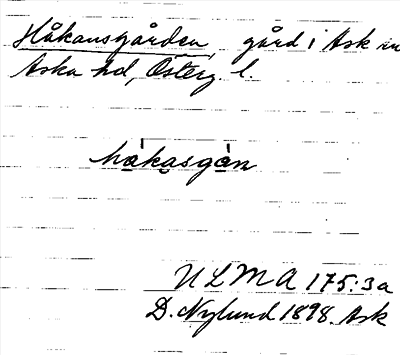 Håkansgården, gård i Ask sn
Aska hd, Österg. l.
håkasgån
ULMA 175:3a
D. Nylund 1898. Ask